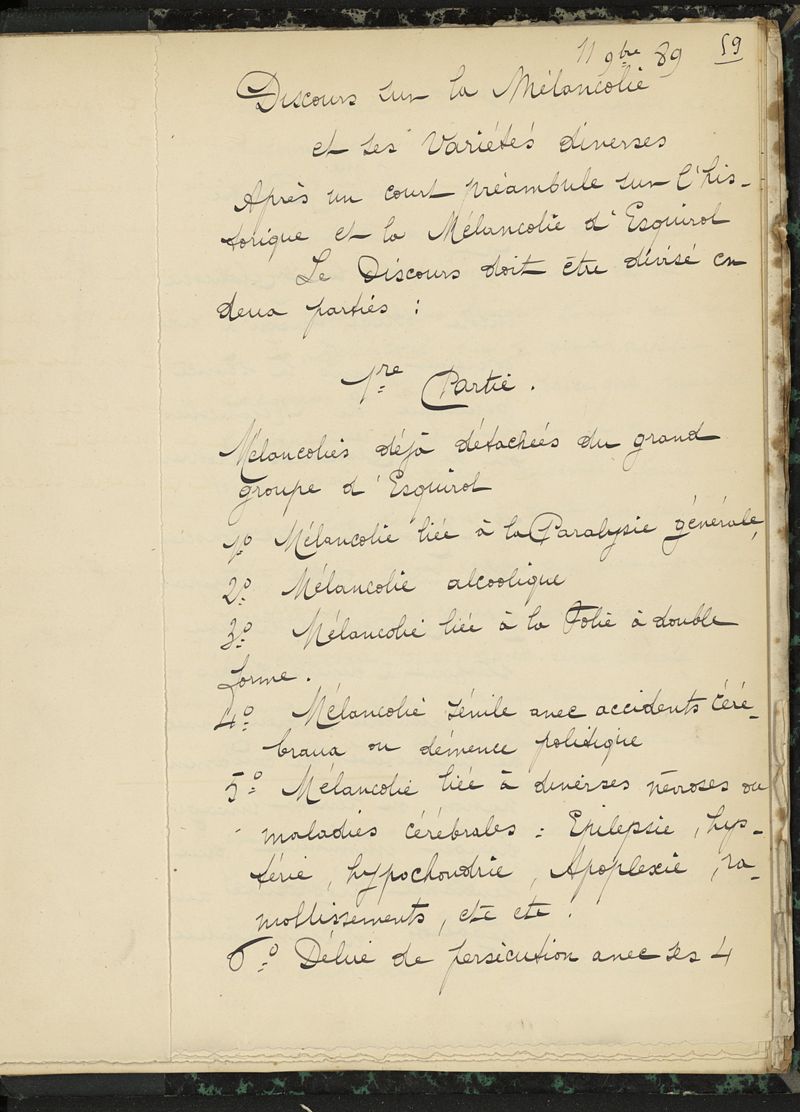 11 9bre 89 59
Discours sur la Mélancolie
et ses Variétés diverses
Après un court préambule sur l'his-
torique et la Mélancolie d'Esquirol
Le Discours doit être divisé en
deux parties :
1re Partie.
Mélancolies déjà détachées du grand
groupe d'Esquirol
1º Mélancolie liée à la Paralysie générale,
2º Mélancolie alcoolique
3º Mélancolie liée à la Folie à double
forme.
4º Mélancolie sénile avec accidents céré-
braux ou démence politique
5º Mélancolie liée à diverses névroses ou
maladies cérébrales : Epilepsie, hys-
térie, hypochondrie, Apoplexie, ra-
mollissements, etc etc.
6º Délire de persécution avec ses 4